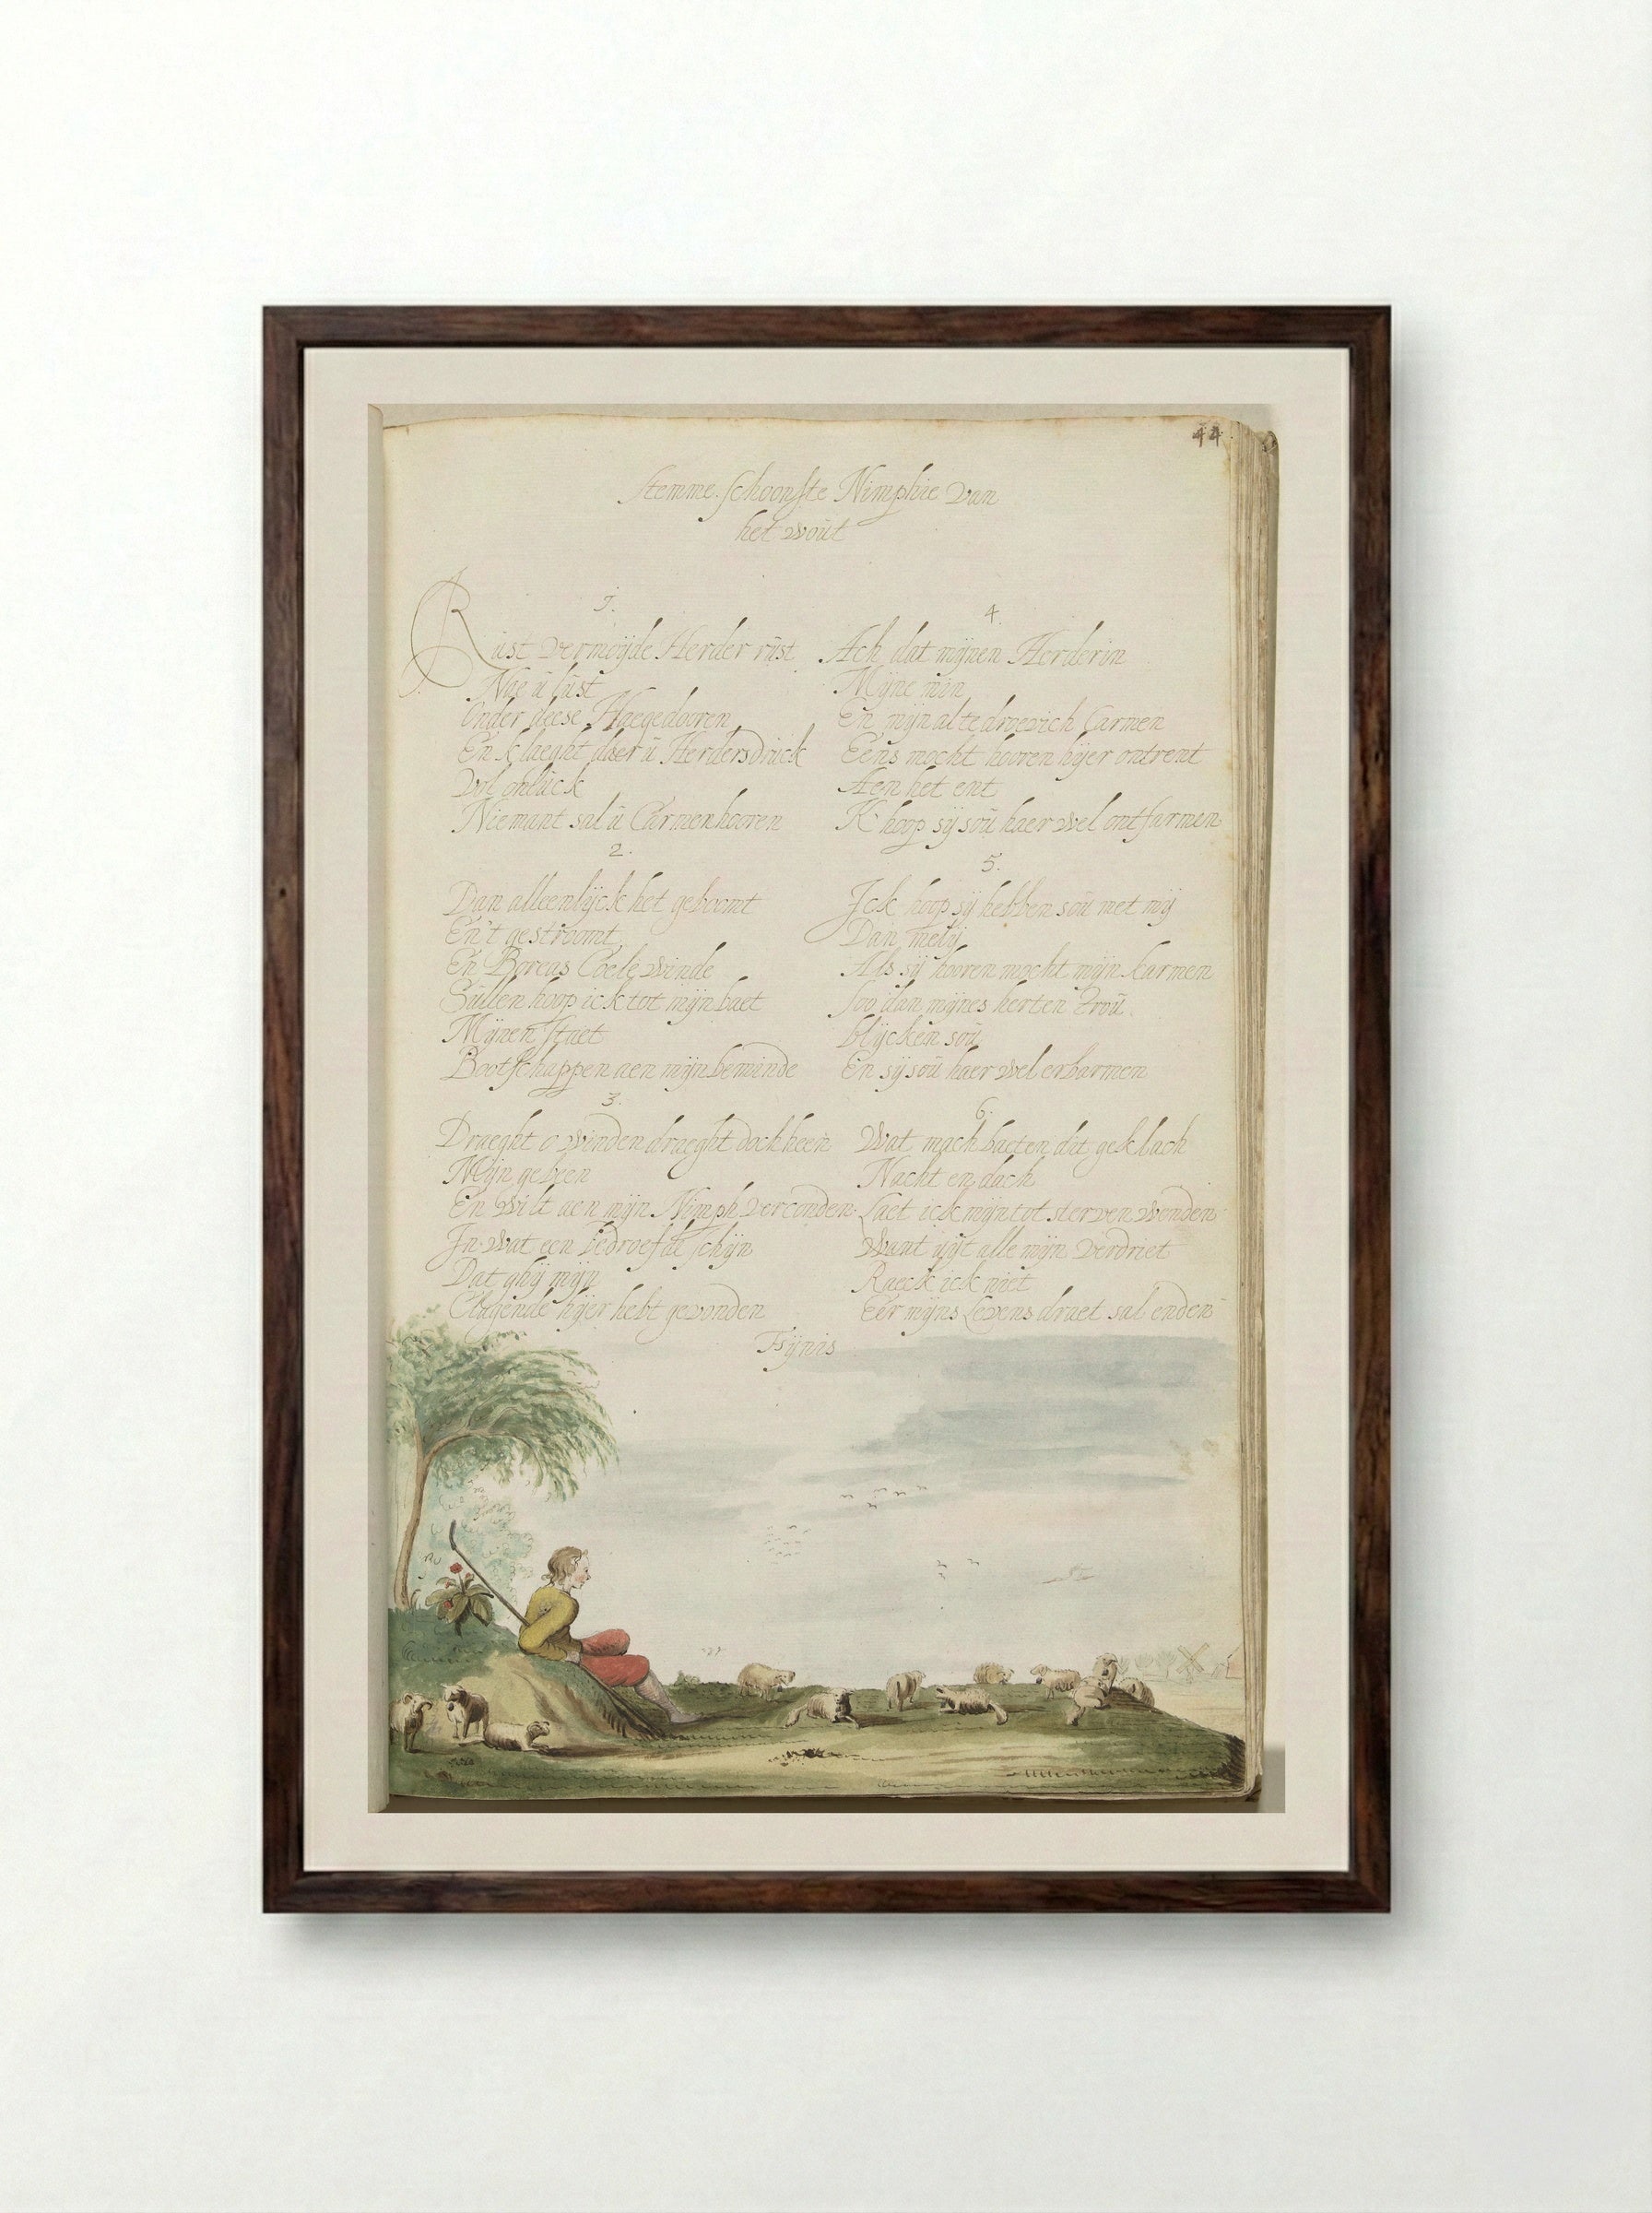 44
Stemme. schoonste Nimphie van
het wout
1.
Rust vermoijde Herder rust
Nae ú lust
Onder deese Haegedooren
En klaeght daer ú Herdersdruck
Vol onluck
Niemant sal ú Carmen hooren
2.
Dan alleenlijck het geboomt
En't gestroomt
En Boreas Coele winde
Súllen hoop ick tot mijn baet
Mijnen staet
Bootschappen aen mijn beminde
3.
Draeght o winden draeght doch heen
Mijn geween
En wilt aen mijn Nimph verconden
In wat een bedroefde schijn
Dat ghij mijn
Clagende hijer hebt gevonden
4.
Ach dat mijnen Herderin
Mijne min
En mijn al te droevich Carmen
Eens mocht hooren hijer ontrent
Aen het ent
K' hoop sij soú haer wel ontfarmen
5.
Ick hoop sij hebben soú met mij
Dan melij
Als sij hooren mocht mijn karmen
soo dan mijnes herten Trou
blijcken soú
En sij soú haer wel erbarmen
6.
Wat mach baeten dit geklach
Nacht en dach
Laet ick mijn tot sterven wenden
Want uijt alle mijn verdriet
Raeck ick niet
Eer mijns Levens draet sal enden
Fijnis